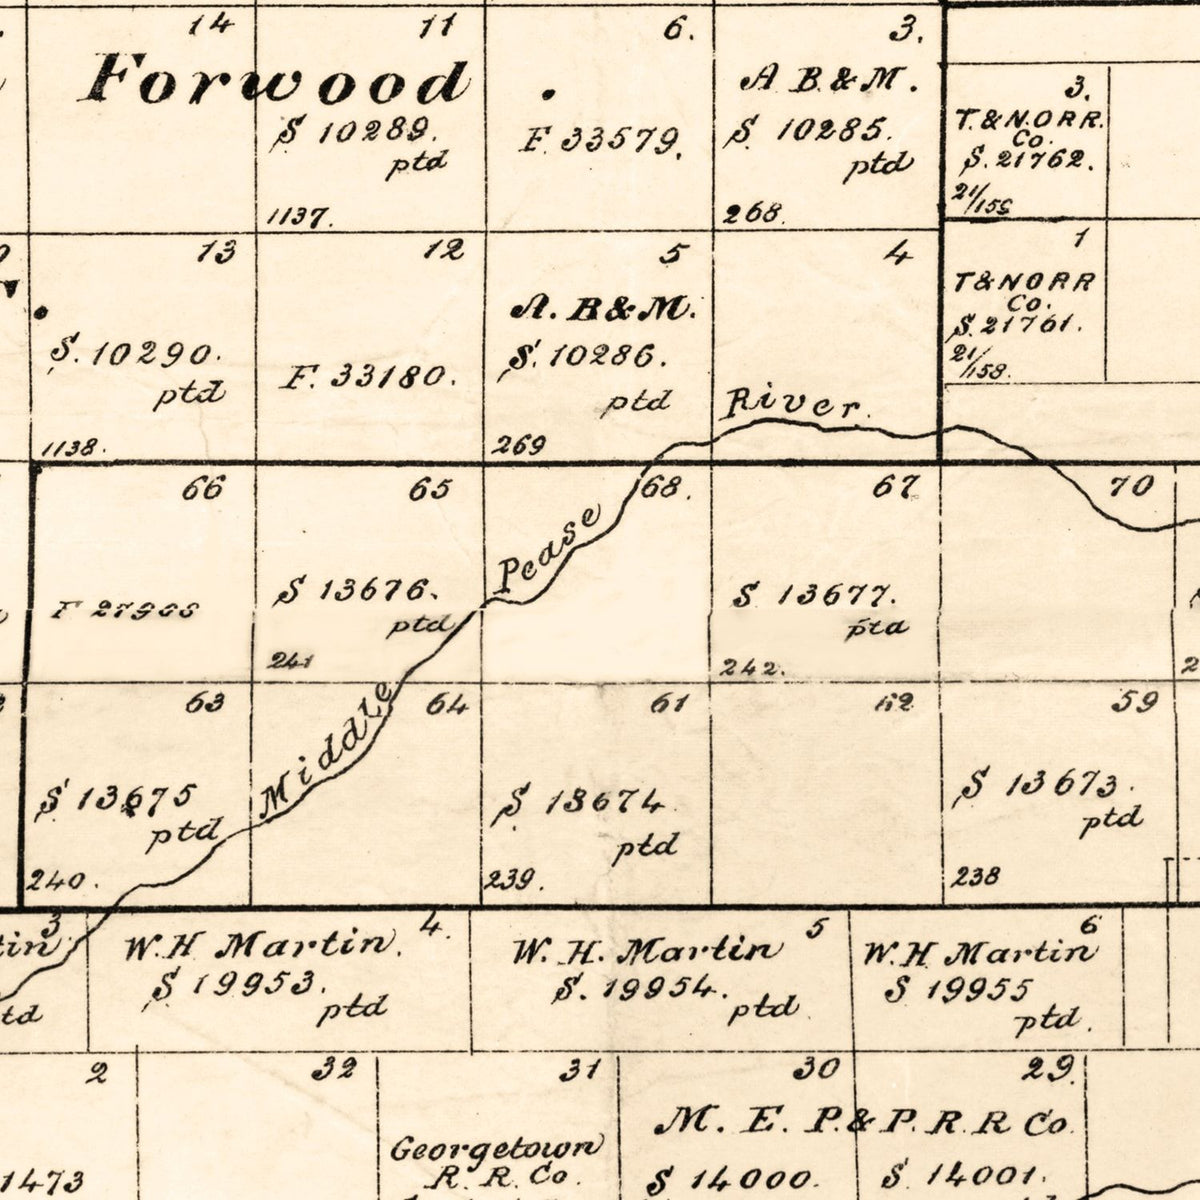 14
11
6.
3.
Forwood
A B.&M.
S 10289.
ptd
F. 33579.
S 10285.
ptd
1137.
268.
3.
T.&N.O.R.R.
Co.
S. 21762.
13
12
5
4
1
A. B&M.
T&NORR
Co.
S. 21761.
21/158.
S. 10290.
ptd
F. 33180.
S. 10286.
ptd
River.
1138.
269
66
65
68.
67
70
Pease
S 13676.
ptd
S 13677.
ptd
241
242.
63
64
61
62
59
Middle
S 13675
ptd
S 13674
ptd
S 13673.
ptd
240.
239.
238
3
4.
5
6
tin
W.H Martin.
W. H. Martin
W.H Martin
S 19953.
ptd
S. 19954.
ptd
S 19955
ptd.
td
2
32
31
30
29.
M. E. P. & P. R. R Co.
Georgetown
R. R. Co.
1473
S 14000.
S 14001.